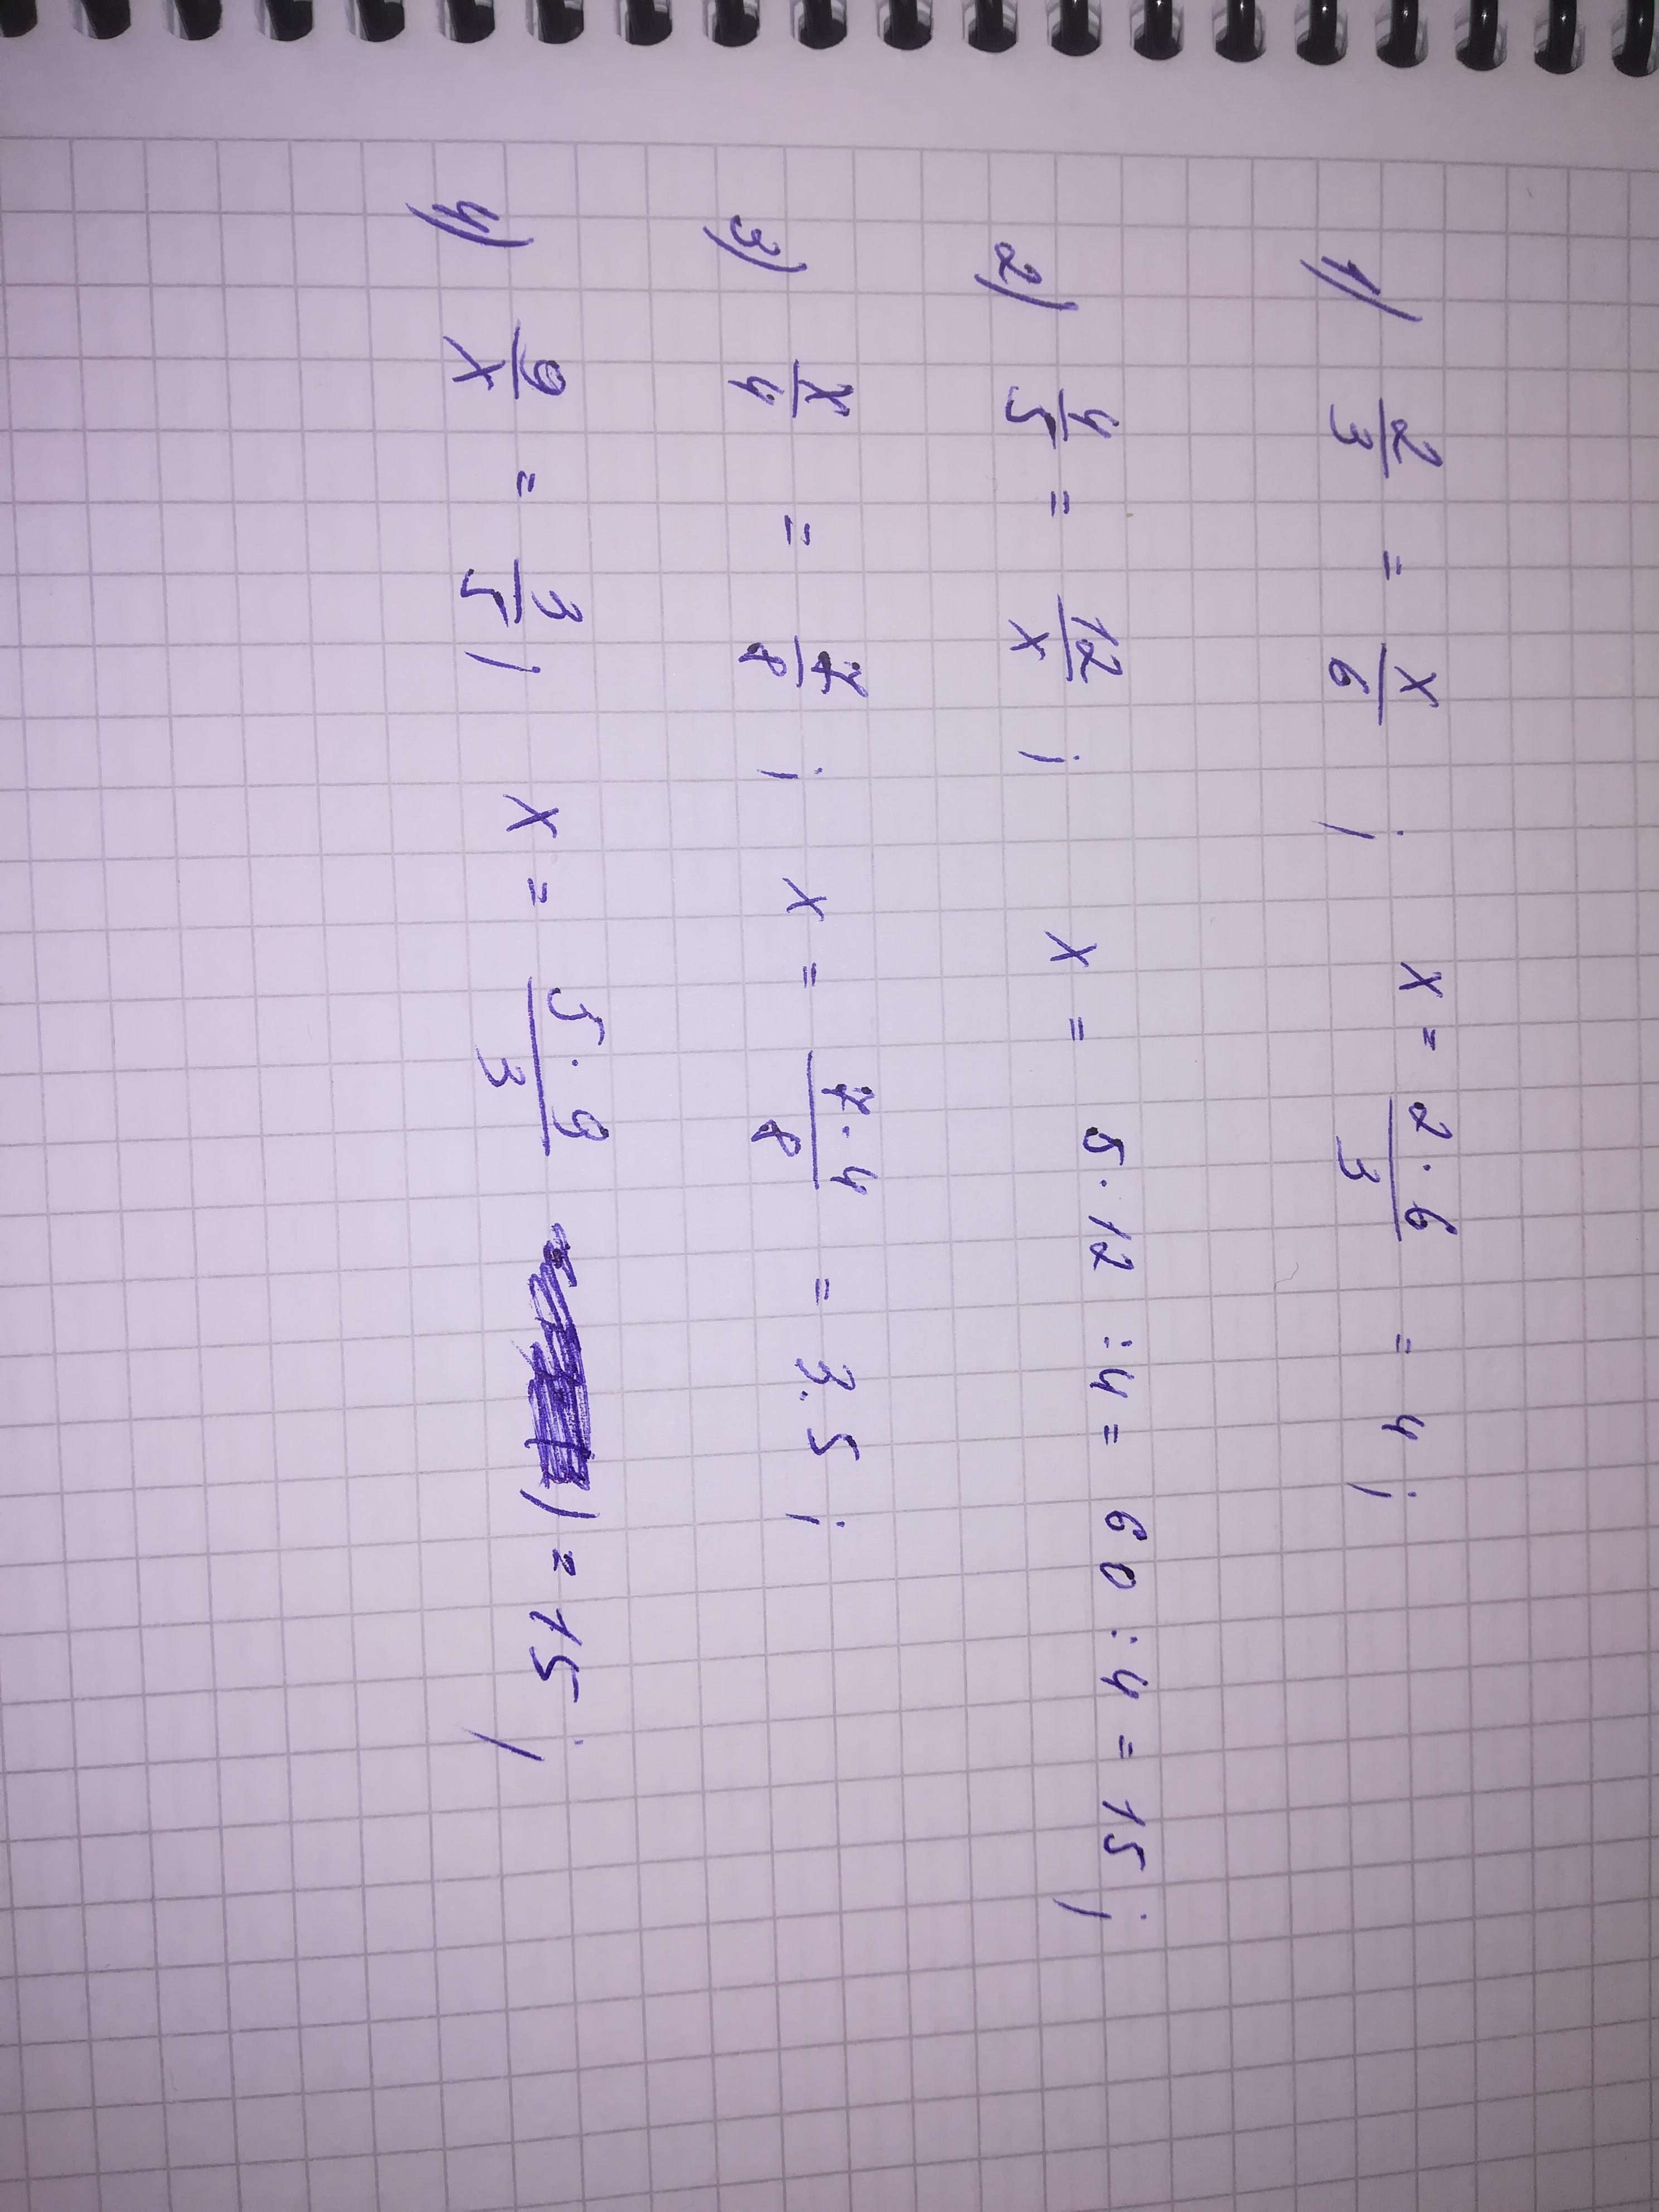 1) 2/3 = x/6 ; x = 2·6/3 = 4;
2) 4/5 = 12/x ; x = 5·12 :4 = 60 :4 = 15;
3) x/4 = 7/8 ; x = 7·4/8 = 3.5;
4) 9/x = 3/5 ; x = 5·9/3 = 15;